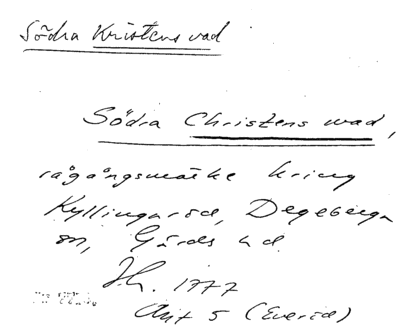 Södra Kristens vad
Södra Christens wad,
rågångsmärke kring
Kyllingaröd, Degeberga
sn, Gärds hd
1777
Akt 5 (Everöd)